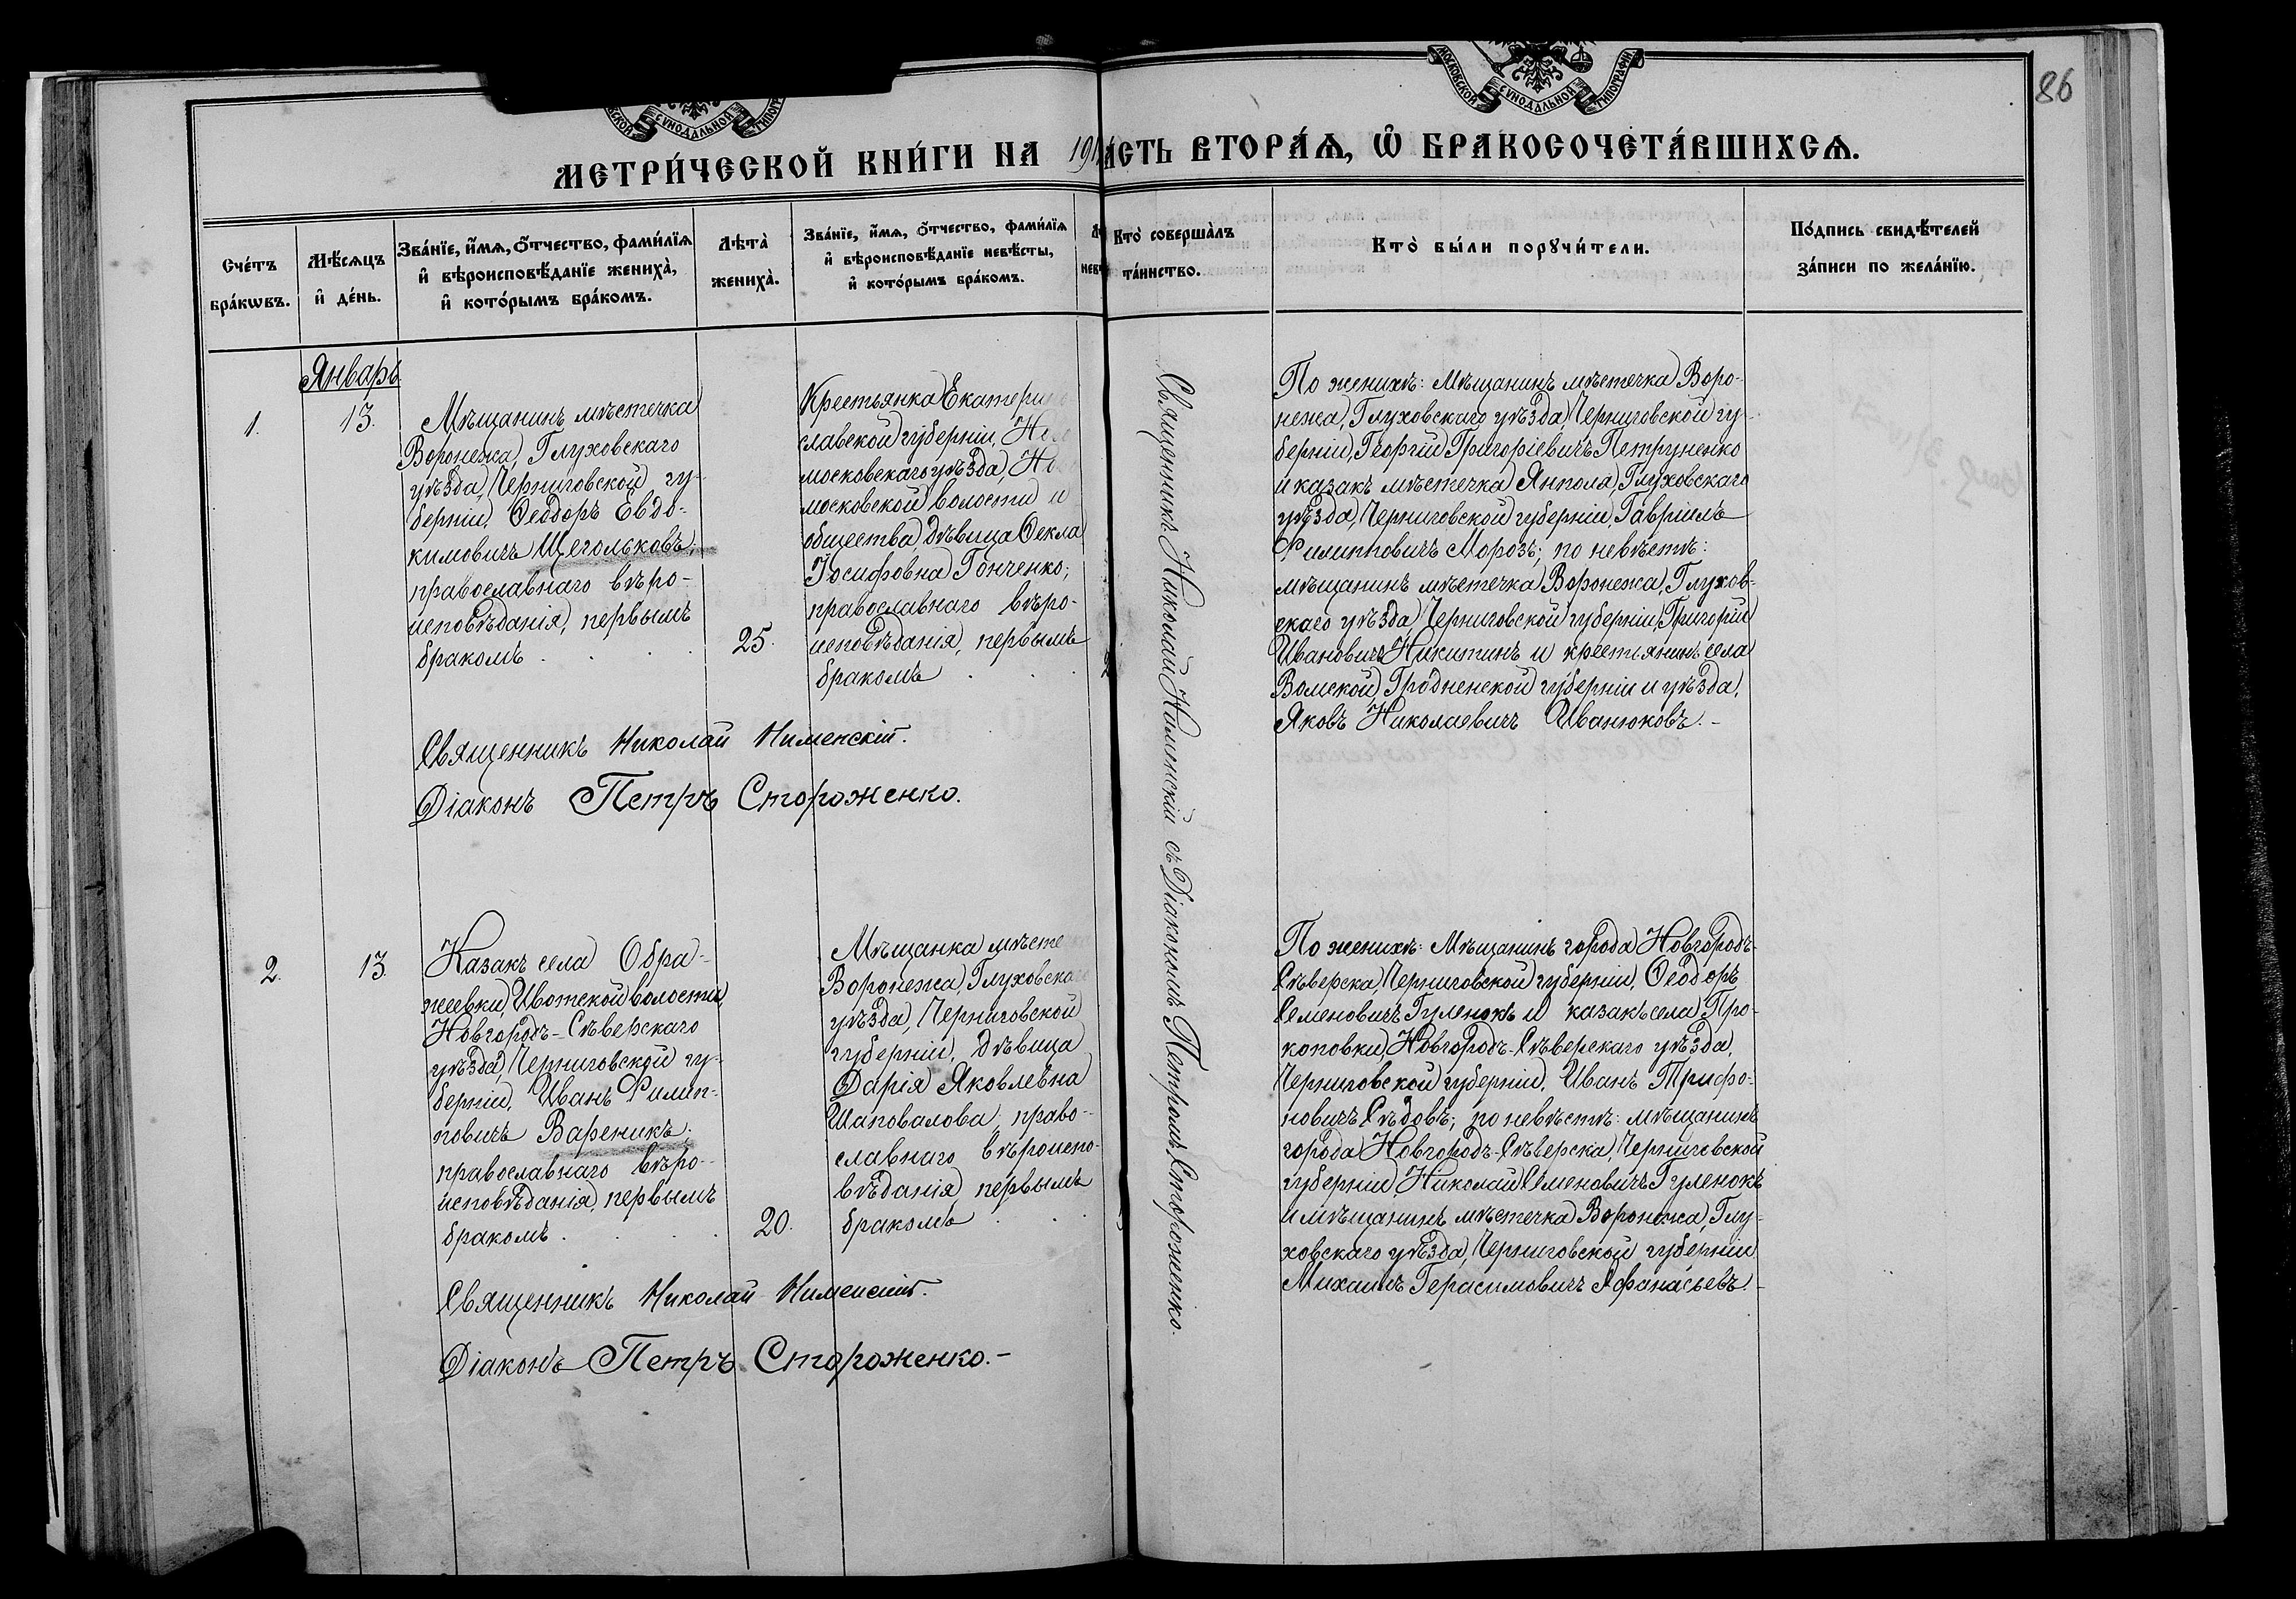 86
МОСКОВСКОЙ СѴНОДАЛЬНОЙ ТИПОГРАФІИ
СѴНОДАЛЬНОЙ
МЕТРИ́ЧЕСКОЙ КНИ́ГИ НА 191
ВТОРА́Ѧ, Ѡ҆ БРАКОСОЧЕТА́ВШИХСѦ.
Сче́тъ бра́кѡвъ.
Мѣ́сѧцъ и҆ де́нь.
Зва́нїе, и҆́мѧ, ѻ҆́тчество, фами́лїѧ
и҆ вѣроисповѣ́данїе жениха̀,
и҆ кото́рымъ бра́комъ.
Лѣта̀ жениха̀.
Зва́нїе, и҆́мѧ, ѻ҆́тчество, фами́лїѧ
и҆ вѣроисповѣ́данїе невѣ́сты,
и҆ кото́рымъ бра́комъ.
Кто̀ соверша́лъ
та́инство.
Кто̀ бы́ли порꙋчи́тели.
По́дпись свидѣ́телей
за́писи по жела́нїю.
Январь
1.
13.
Мѣщанинъ мѣстечка
Воронежа, Глуховскаго
уѣзда, Черниговской гу-
берніи, Ѳеодоръ Евдо-
кимовичъ Щегольковъ,
православнаго вѣро-
исповѣданія, первымъ
бракомъ
25.
Крестьянка
славской губерніи,
московскаго уѣзда,
московской волости и
общества дѣвица Ѳекла
Іосифовна Гонченко;
православнаго вѣро-
исповѣданія, первымъ
бракомъ
Священникъ Николай Нименскій.
Діаконъ Петръ Стороженко.
Священникъ Николай Нименскій съ Діакономъ Петромъ Стороженко.
По женихѣ: Мѣщанинъ мѣстечка Воро-
нежа, Глуховскаго уѣзда, Черниговской гу-
берніи, Георгій Григоріевичъ Петруненко
и казакъ мѣстечка Янполя, Глуховскаго
уѣзда, Черниговской губерніи, Гавріилъ
Филипповичъ Морозъ; по невѣстѣ:
мѣщанинъ мѣстечка Воронежа, Глухов-
скаго уѣзда, Черниговской губерніи, Григорій
Ивановичъ Никитинъ и крестьянинъ села
Волской, Гродненской губерніи и уѣзда,
Яковъ Николаевичъ Иванюковъ.-
2.
13.
Казакъ села Обра-
жеевки, Ивотской волости,
Новгородъ-Сѣверскаго
уѣзда, Черниговской гу-
берніи, Иванъ Филип-
повичъ Вареникъ,
православнаго вѣро-
исповѣданія, первымъ
бракомъ
20.
Мѣщанка
Воронежа, Глуховскаго
уѣзда, Черниговской
губерніи, дѣвица
Дарія Яковлевна
Шаповалова, право-
славнаго вѣроиспо-
вѣданія, первымъ
бракомъ
Священникъ Николай Нименскій.
Діаконъ Петръ Стороженко.-
По женихѣ: Мѣщанинъ города Новгородъ-
Сѣверска, Черниговской губерніи, Ѳеодоръ
Семеновичъ Гуленокъ и казакъ села Про-
коповки, Новгородъ-Сѣверскаго уѣзда,
Черниговской губерніи, Иванъ Трифо-
новичъ Сѣдовъ; по невѣстѣ: мѣщанинъ
города Новгородъ-Сѣверска, Черниговской
губерніи, Николай Семеновичъ Гуленокъ
и мѣщанинъ мѣстечка Воронежа, Глу-
ховскаго уѣзда, Черниговской губерніи
Михаилъ Герасимовичъ Афанасьевъ.-